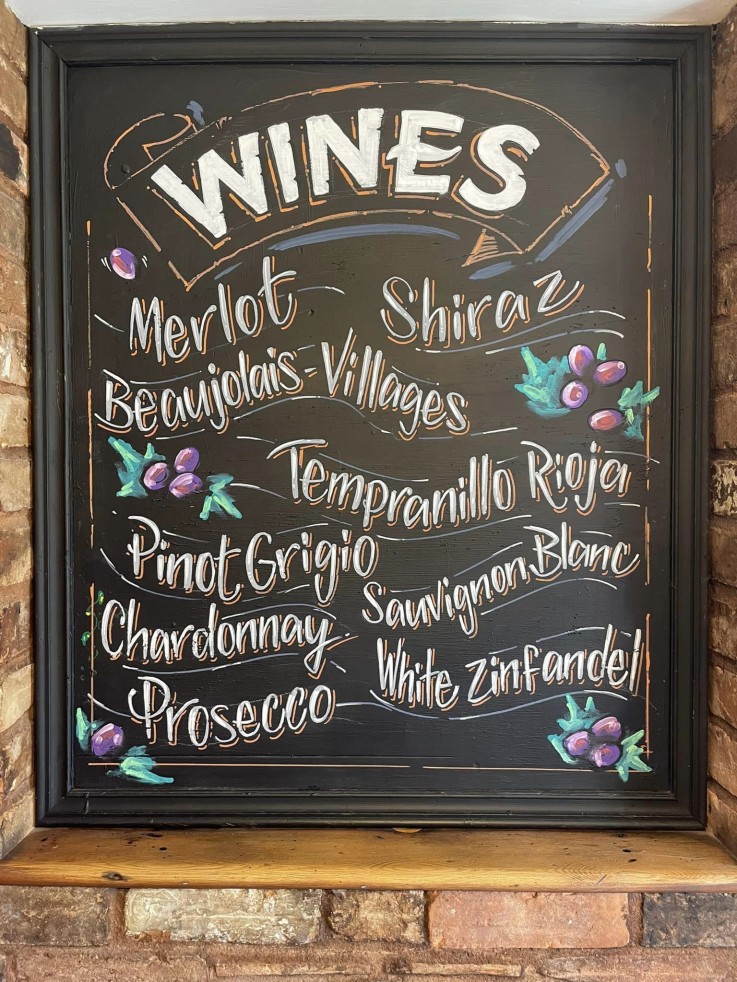 WINES
Merlot
Shiraz
Beaujolais-Villages
Tempranillo Rioja
Pinot Grigio
Sauvignon Blanc
Chardonnay
White Zinfandel
Prosecco